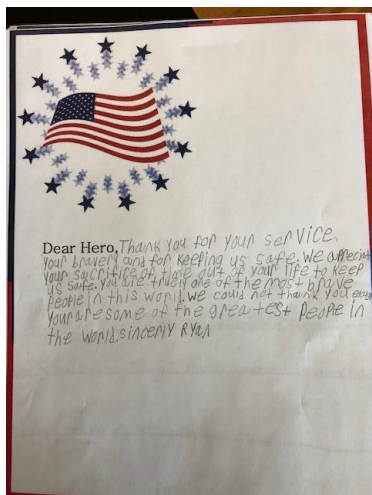 Dear Hero, Thank you for your service,
your bravery and for keeping us safe. We appreciat
your sacrifice of time out of your life to keep
us safe. You are truely one of the most brave
people in this world. We could not thank you enough
your are some of the greatest people in
the world. sincerly Ryan